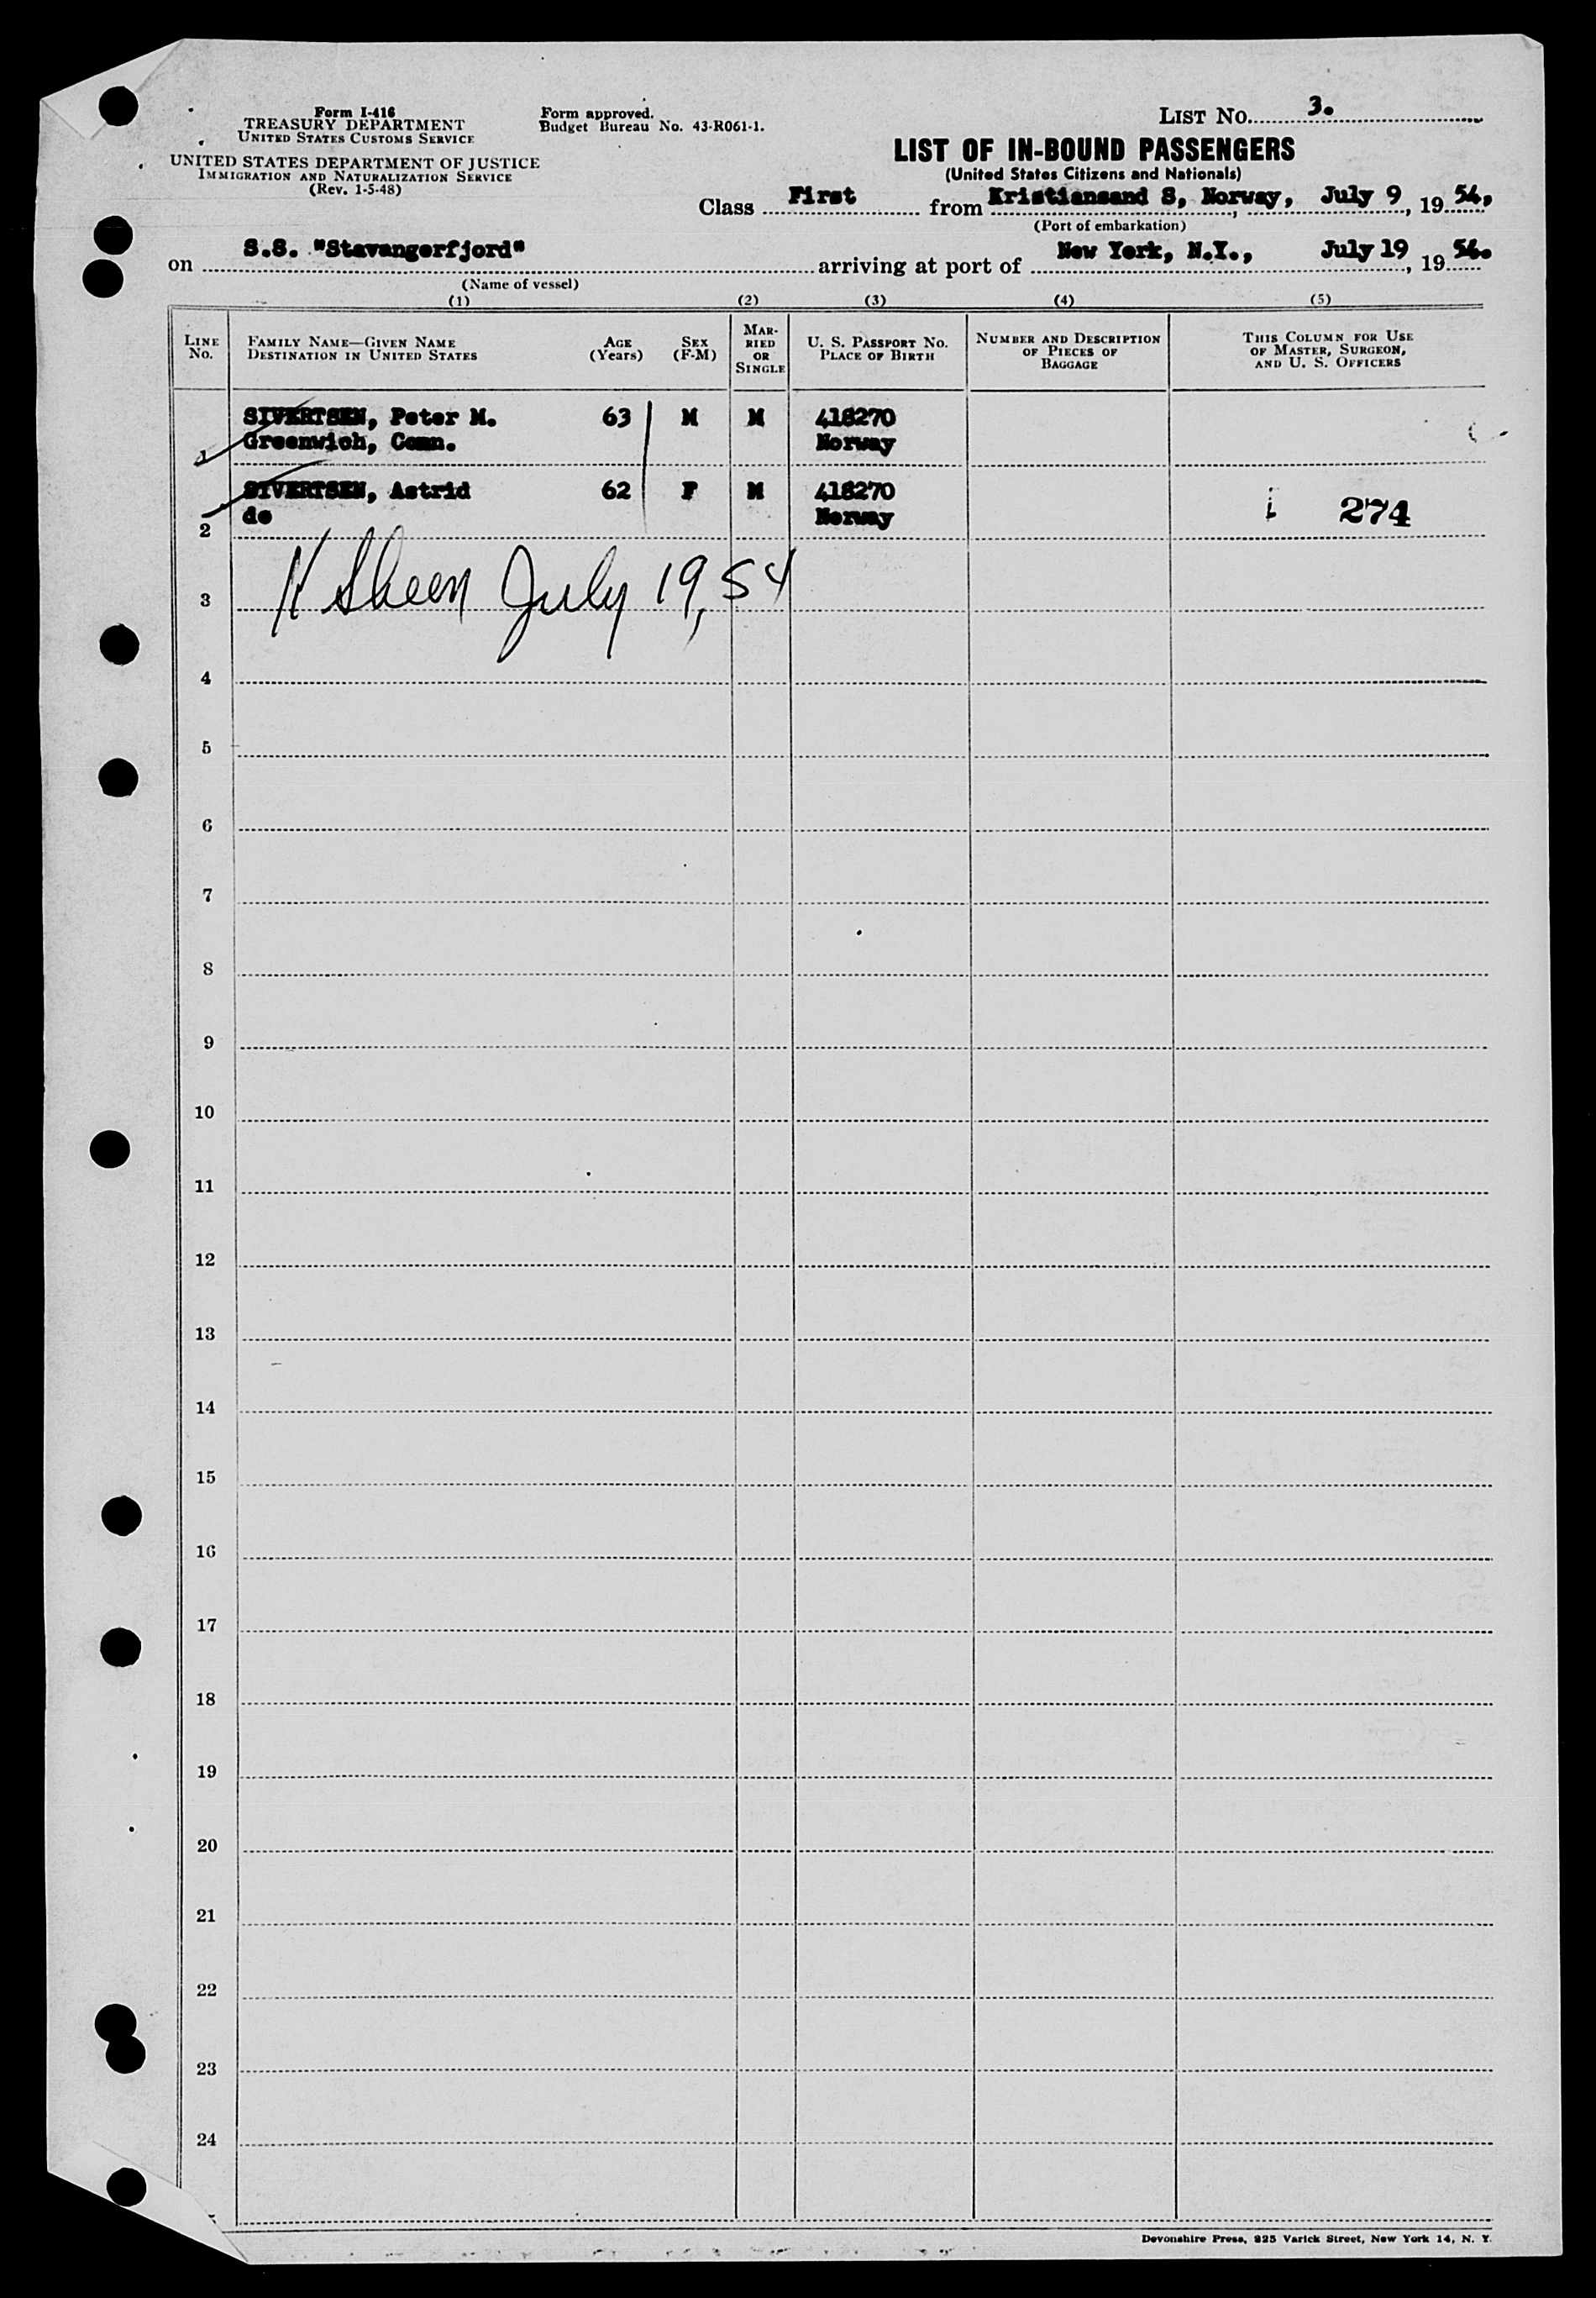 Form I-416
TREASURY DEPARTMENT
UNITED STATES CUSTOMS SERVICE
UNITED STATES DEPARTMENT OF JUSTICE
IMMIGRATION AND NATURALIZATION SERVICE
(Rev. 1-5-48)
Form approved.
Budget Bureau No. 43-R061-1.
LIST No. 3.
LIST OF IN-BOUND PASSENGERS
(United States Citizens and Nationals)
Class First from Kristiansand S, Norway, July 9, 1954,
(Port of embarkation)
on S.S. "Stavangerfjord" arriving at port of New York, N.Y., July 19, 1954.
(Name of vessel)
(1) (2) (3) (4) (5)
LINE No. FAMILY NAME—GIVEN NAME DESTINATION IN UNITED STATES AGE (Years) SEX (F-M) MARRIED OR SINGLE U. S. PASSPORT No. PLACE OF BIRTH NUMBER AND DESCRIPTION OF PIECES OF BAGGAGE THIS COLUMN FOR USE OF MASTER, SURGEON, AND U. S. OFFICERS
SIVERTSEN, Peter M. 63 M M 418270
1 Greenwich, Conn. Norway
SIVERTSEN, Astrid 62 F M 418270
2 do Norway i 274
3 July 19, 54
4
5
6
7
8
9
10
11
12
13
14
15
16
17
18
19
20
21
22
23
24
Devonshire Press, 225 Varick Street, New York 14, N. Y.